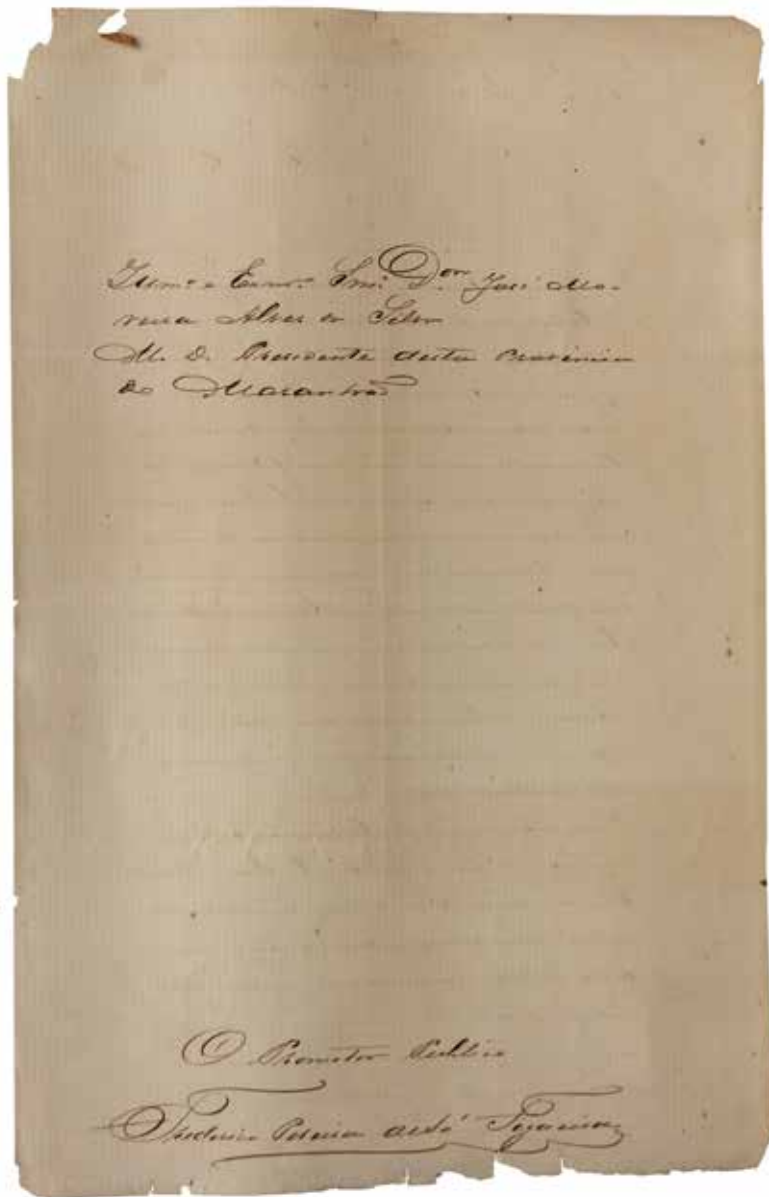 Illmo e Exmo Snr. Dor José Mo-
reira Alves da Silva
M. D. Presidente desta Provincia
do Maranhão
O Promotor Publico
Frederico Pereira de Sá Figueira